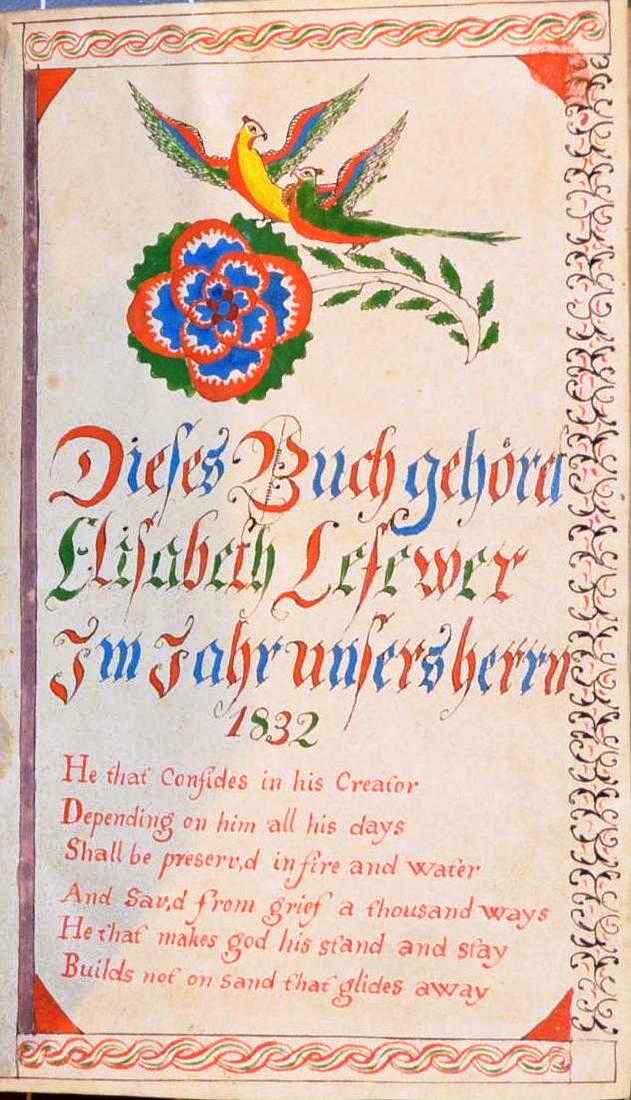 Dieses Buch gehöret
Elisabeth Lefewer
Im Jahr unsers herrn
1832
He that Confides in his Creator
Depending on him all his days
Shall be preserv,d in fire and water
And Sav,d from grief a thousand ways
He that makes god his stand and stay
Builds not on sand that glides away